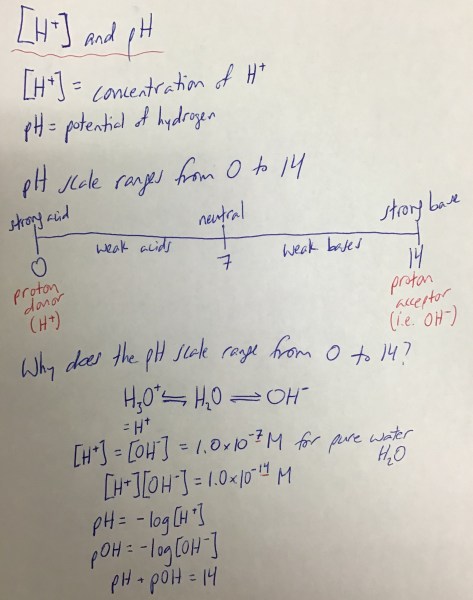 [H⁺] and pH
[H⁺] = concentration of H⁺
pH = potential of hydrogen
pH scale ranges from 0 to 14
strong acid neutral strong base
weak acids weak bases
0 7 14
proton donor (H⁺) proton acceptor (i.e. OH⁻)
Why does the pH scale range from 0 to 14?
H₃O⁺ ⇌ H₂O ⇌ OH⁻
= H⁺
[H⁺] = [OH⁻] = 1.0 x 10⁻⁷ M for pure water
H₂O
[H⁺][OH⁻] = 1.0 x 10⁻¹⁴ M
pH = -log[H⁺]
pOH = -log[OH⁻]
pH + pOH = 14